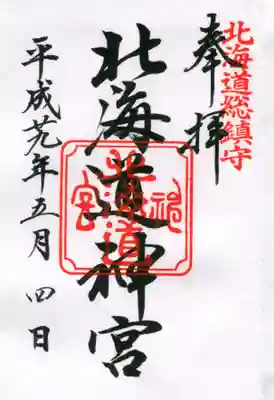 北海道総鎮守
奉拝
北海道神宮
平成廿九年五月四日
北海道神宮